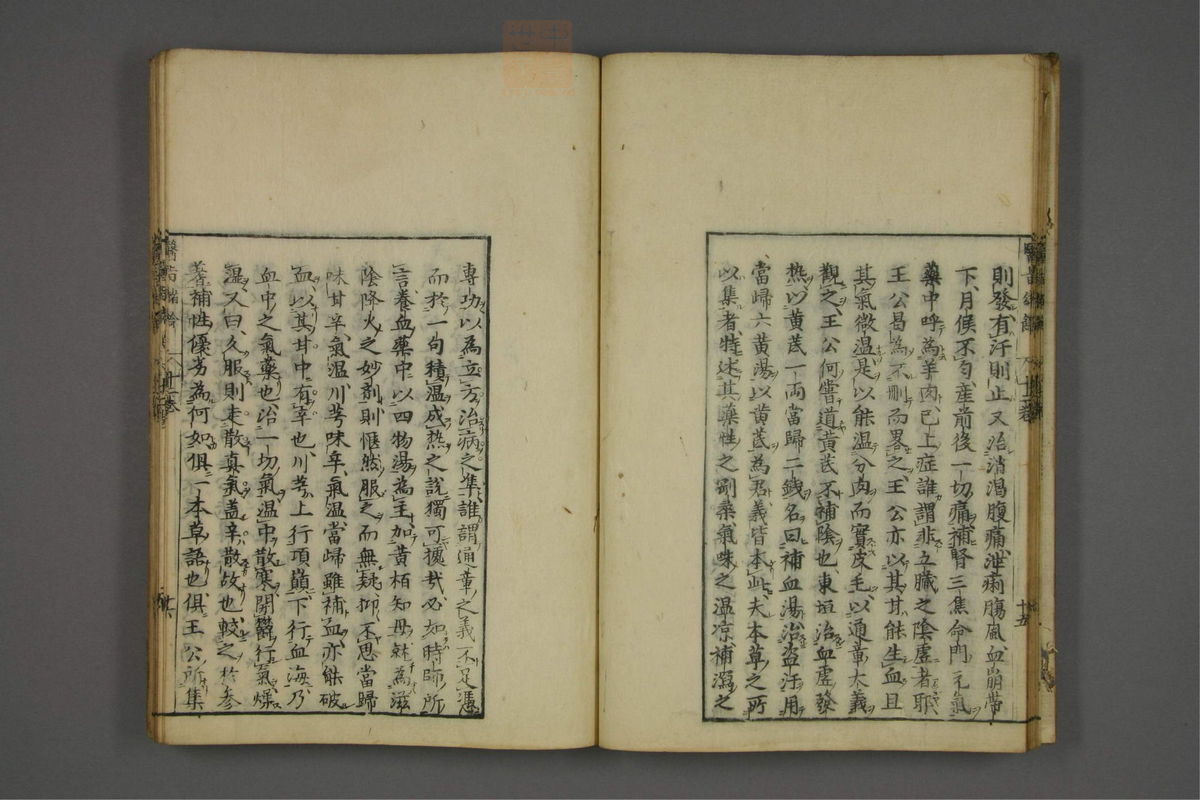 則發有汗則止又治消渴腹痛泄痢腸風血崩帶
下月候不勻產前後一切痛補腎三焦命門元氣
藥中呼為羊肉已上症誰謂非五臟之陰虛者耶
王公曷為不刪而畧之王公亦以其甘能生血且
其氣微温是以能温分肉而實皮毛以通章大義
觀之王公何嘗道黃芪不補陰也東垣治血虛發
热以黃芪一両當歸二錢名曰補血湯治盜汗用
當歸六黃湯以黃芪為君義皆本此夫本草之所
以集者特述其藥性之剛柔氣味之温凉補瀉之
十五
專功以為立方治病之準誰謂通章之義不足憑
而於一句積温成热之說獨可據哉必如時師所
言養血藥中以四物湯為主加黃栢知母就為滋
陰降火之妙剤則愜然服之而無疑抑不思當歸
味甘辛氣温川芎味辛氣温當歸雖補血亦能破
血以其甘中有辛也川芎上行項巔下行血海乃
血中之氣藥也治一切氣温中散寒開鬱行氣燥
濕又曰久服則走散真氣盖辛散故也較之於參
蓍補性優劣為何如俱一本草語也俱王公所集